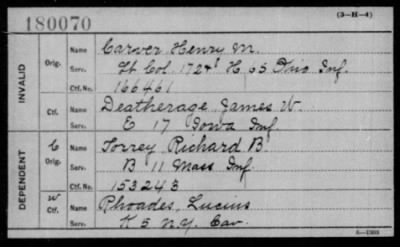 180070
(3-H-4)
INVALID
Orig.
Name Carver Henry M.
Serv. Lt Col. 172 & H. 65 Ohio Inf.
Ctf. No. 166461
Ctf.
Name Deatherage, James W.
Serv. E 17 Iowa Inf
DEPENDENT
C
Orig.
Name Torrey Richard B.
Serv. B 11 Mass Inf
Ctf. No. 153243
W
Ctf.
Name Rhoades, Lucius
Serv. K 5 N.Y. Cav.